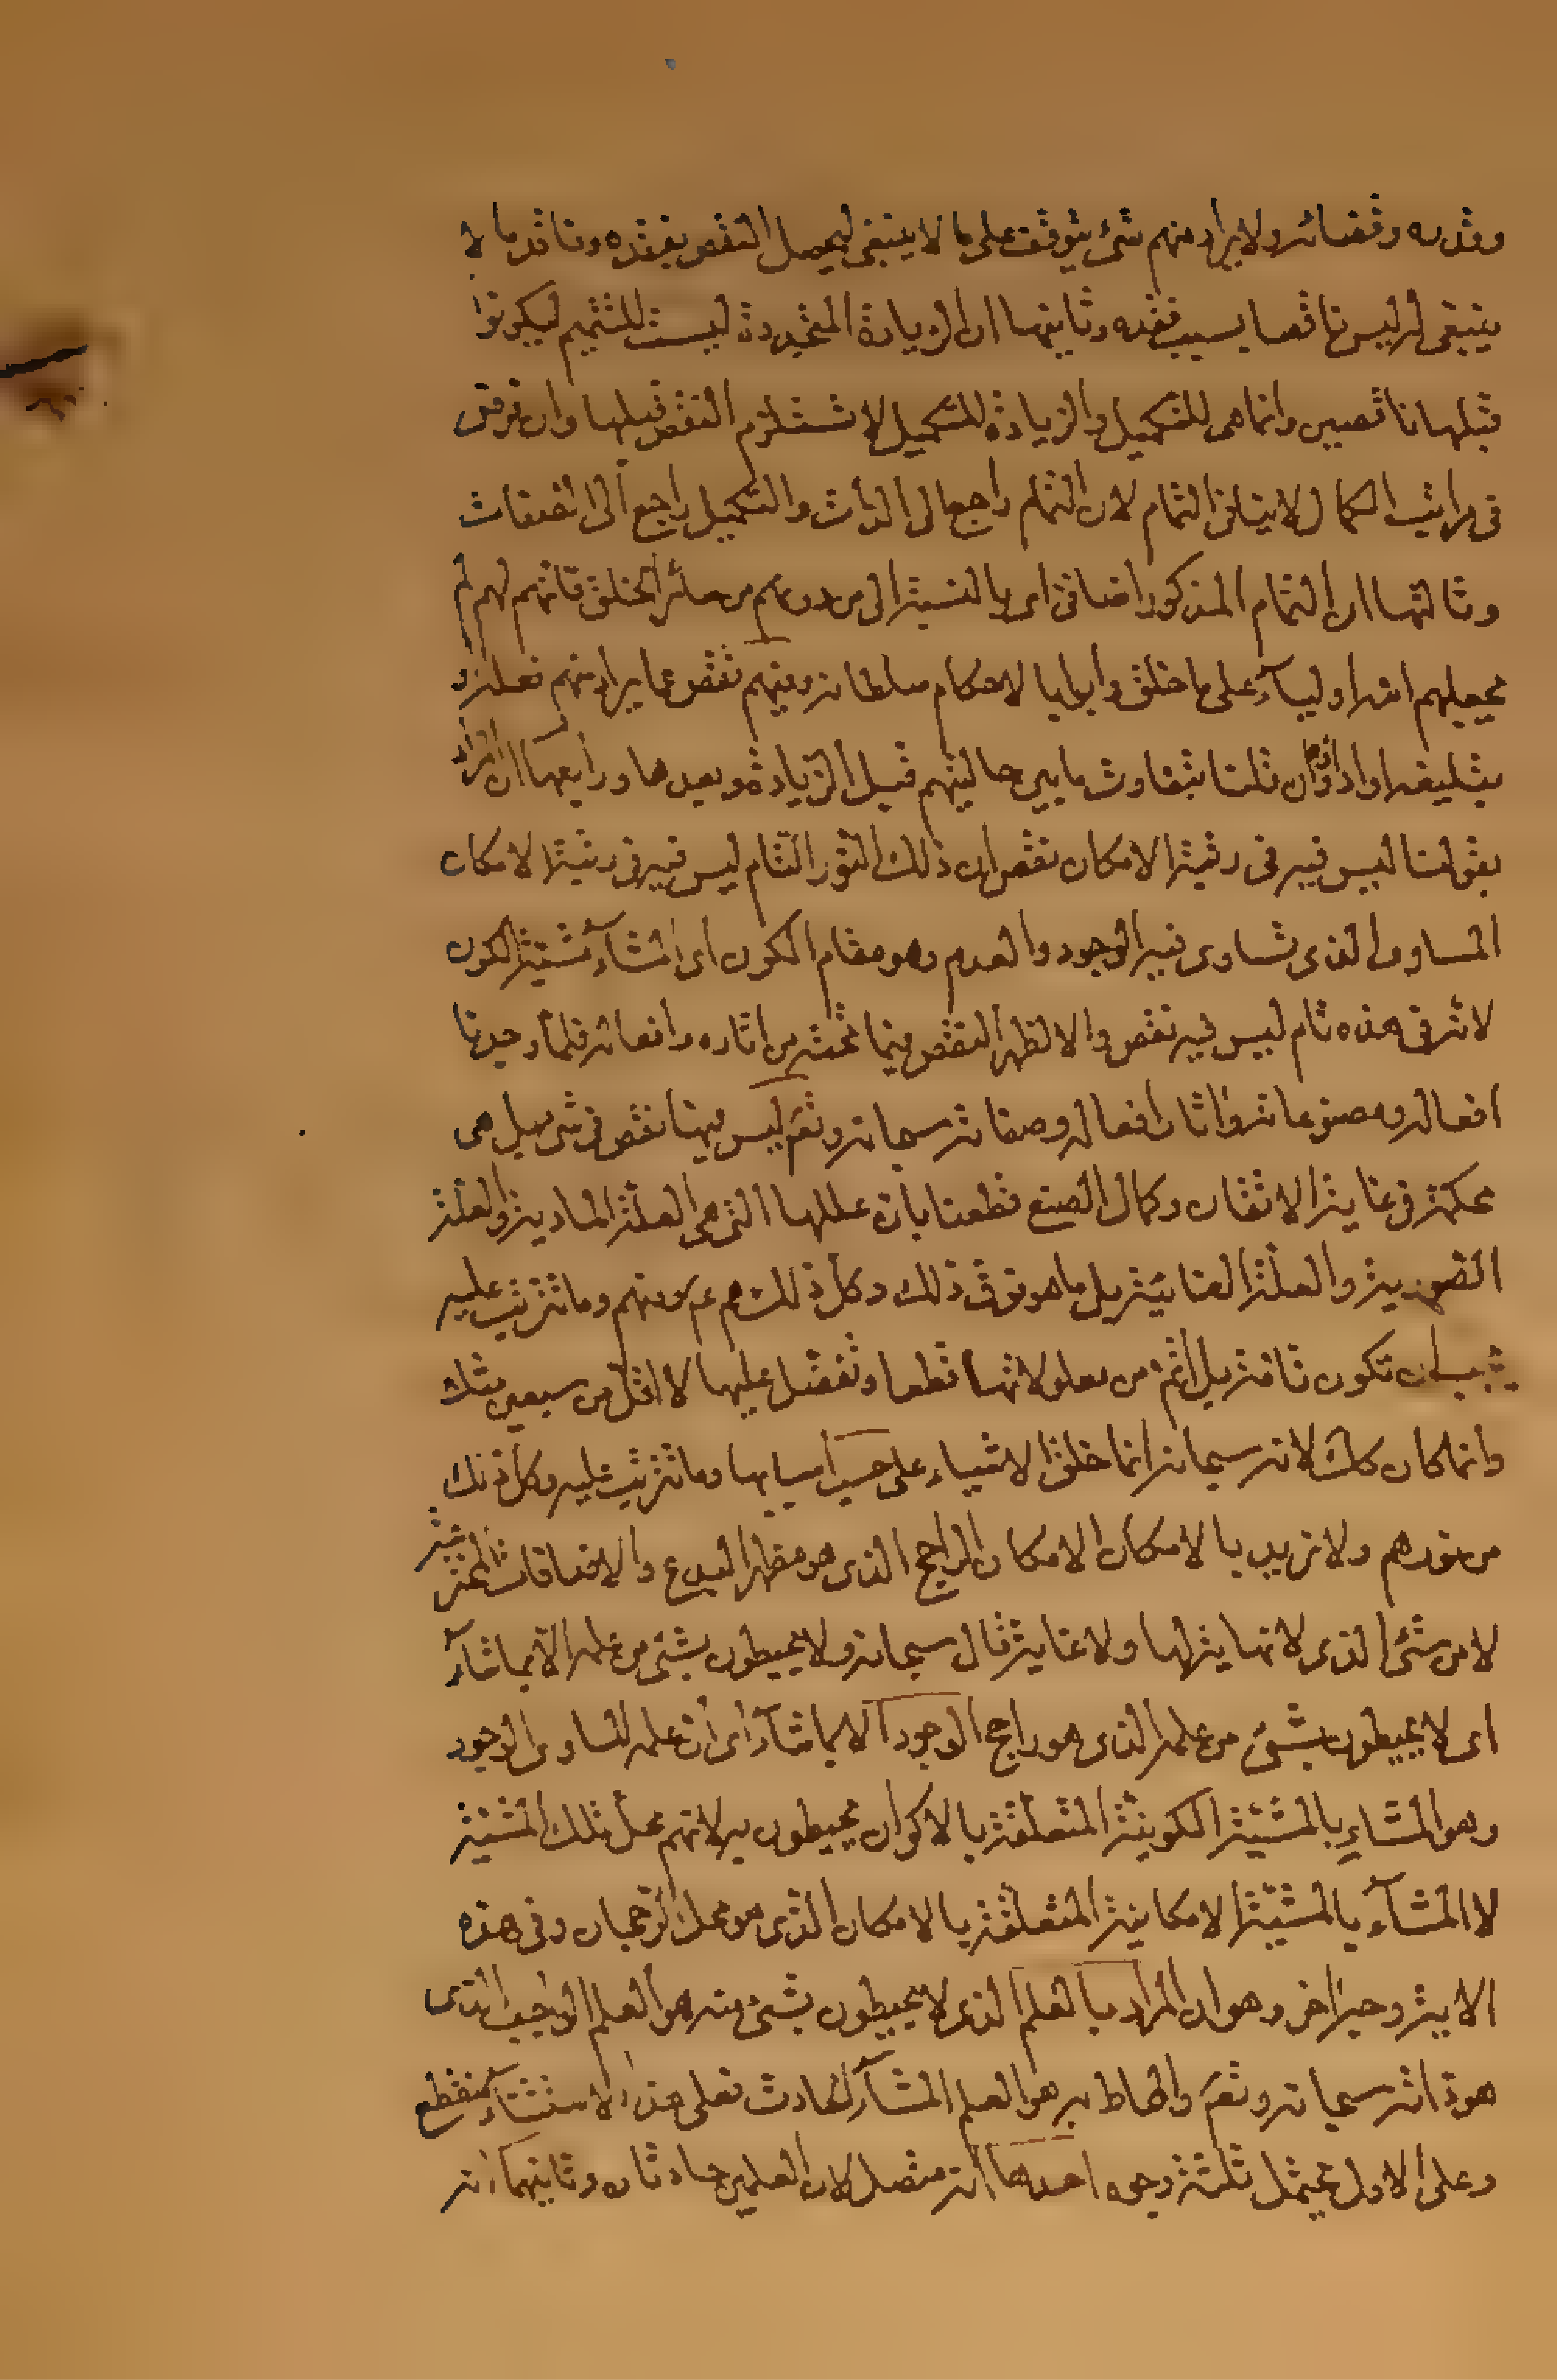 وقدره وقضائه ولا يراد منهم شئ يتوقف على ما لا ينبغى ليحصل النقص بفقده وفاقد ما لا
ينبغى له ليس ناقصا بسبب فقده وثانيها ان الزيادة المتجددة ليست للتتميم ليكونوا
قبلها ناقصين وانما هى للتكميل والزيادة للتكميل لا تستلزم النقص قبلها وان فرض
فى مراتب الكمال لا ينافى التمام لان التمام راجع الى الذات والتكميل راجع الى الصفات
وثالثها ان التمام المذكور اضافى اى بالنسبة الى من دونهم من سائر الخلق فانهم لهم لم
يجعلهم الله اولياء على ما خلق وابوابا لاحكام سلطانه وفيهم نقص عما يراد منهم فعله و
تبليغه او اداؤه وان قلنا بتفاوت ما بين حاليتهم قبل الزيادة وبعدها ورابعها ان المراد
بقولنا ليس فيه فى رتبة الامكان نقص ان ذلك النور التام ليس فيه فى رتبة الامكان
المساوى الذى تساوى فيه الوجود والعدم وهو مقام الكون اى المشاء بمشية الكون
لانه فى هذه تام ليس فيه نقص والا لظهر النقص فيما تحته من اثاره وافعاله فلما وجدنا
افعاله ومصنوعاته واثار افعاله وصفاته سبحانه وتع ليس فيها نقص فى شئ بل هى
محكمة فى غاية الاتقان وكمال الصنع قطعنا بان عللها التى هى العلة المادية والعلة
الصورية والعلة الغائية بل ما هو فوق ذلك وكل ذلك هم ع ومنهم وما تترتب عليه
يجب ان تكون تامة بل اتم من معلولاتها قطعا وتفضل عليها لا اقل من سبعين مثلك
وانما كان كك لانه سبحانه انما خلق الاشياء على حسب اسبابها وما تترتب عليه وكل ذلك
من نورهم ولا نريد بالامكان الامكان الراجح الذى هو مظهر البدع والافاضات المخترعة
لا من شئ الذى لا نهاية لها ولا غاية قال سبحانه ولا يحيطون بشئ من علمه الا بما شاء
اى لا يحيطون بشئ من علمه الذى هو راجح الوجود الا بما شاء اى ان علمه المساوى الوجود
وهو المشاء بالمشية الكونية المتعلقة بالاكوان يحيطون به لانهم محل تلك المشية
لا المشاء بالمشية الامكانية المتعلقة بالامكان الذى هو محل الرجحان وفى هذه
الاية وجه اخر وهو ان المراد بالعلم الذى لا يحيطون بشئ منه هو العلم الواجب الذى
هو ذاته سبحانه وتع والمحاط به هو العلم المشاء الحادث فعلى هذا الاستثناء منقطع
وعلى الاول يحتمل ثلثة وجوه احدها انه متصل لان العلمين حادثان وثانيهما انه